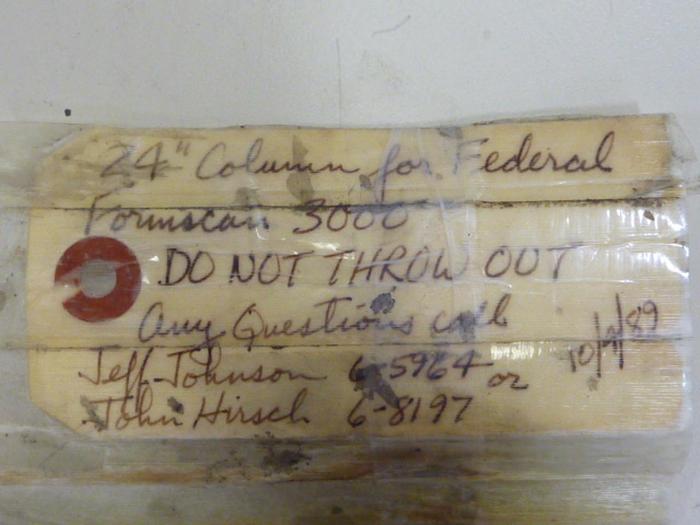 24" Column for Federal
Formscan 3000
DO NOT THROW OUT
Any Questions call
Jeff Johnson 6-5964 or
John Hirsch 6-8197
10/4/89